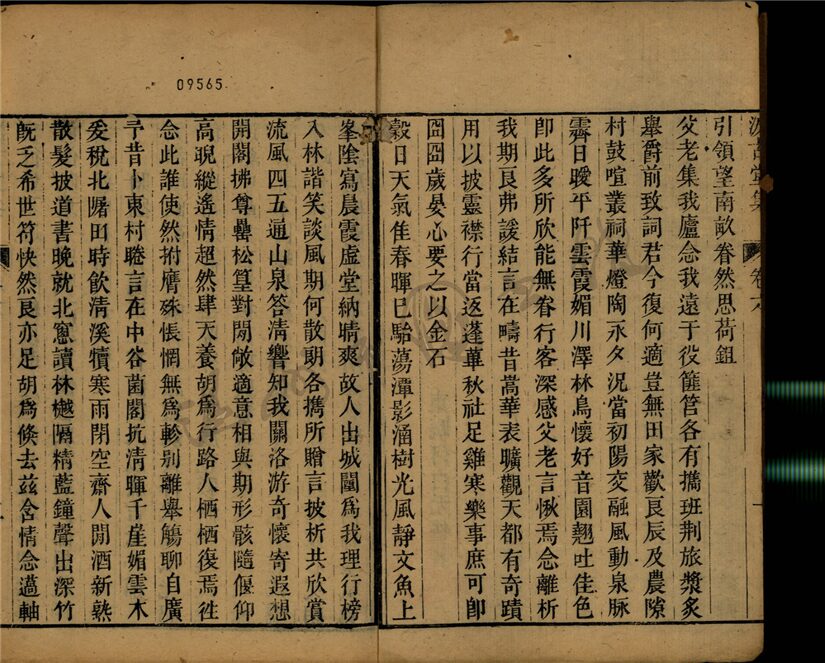 09565
堂集 卷六
引領望南畝眷然思荷鉏
父老集我廬念我遠于役簞笥各有攜班荆旅漿炙
舉爵前致詞君今復何適豈無田家歡良辰及農隙
村鼓喧叢祠華燈陶永夕況當初陽交融風動泉脉
霽日曖平阡雲霞媚川澤林鳥懷好音園翹吐佳色
卽此多所欣能無眷行客深感父老言愀焉念離析
我期良弗諼結言在疇昔嵩華表曠觀天都有奇蹟
用以披靈襟行當返蓬蓽秋社足雞寒樂事庶可卽
囧囧歲晏心要之以金石
穀日天氣佳春暉已駘蕩潭影涵樹光風靜文魚上
峯陰寫晨霞虛堂納晴爽故人出城闉爲我理行榜
入林諧笑談風期何散朗各攜所贈言披析共欣賞
流風四五通山泉答清響知我關洛游奇懷寄遐想
開閣拂尊罍松篁對閒敞適意相與期形骸隨偃仰
高睨縱遙情超然肆天養胡爲行路人栖栖復焉徃
念此誰使然拊膺殊悵惘無爲軫别離舉觴聊自廣
予昔卜東村睠言在中谷菌閣抗清暉千崖媚雲木
爰稅北陼田時飲清溪犢寒雨閉空齋人閒酒新熟
散髮披道書晚就北窻讀林樾隔精藍鐘聲出深竹
旣乏希世符快然良亦足胡爲倏去兹含情念邁軸